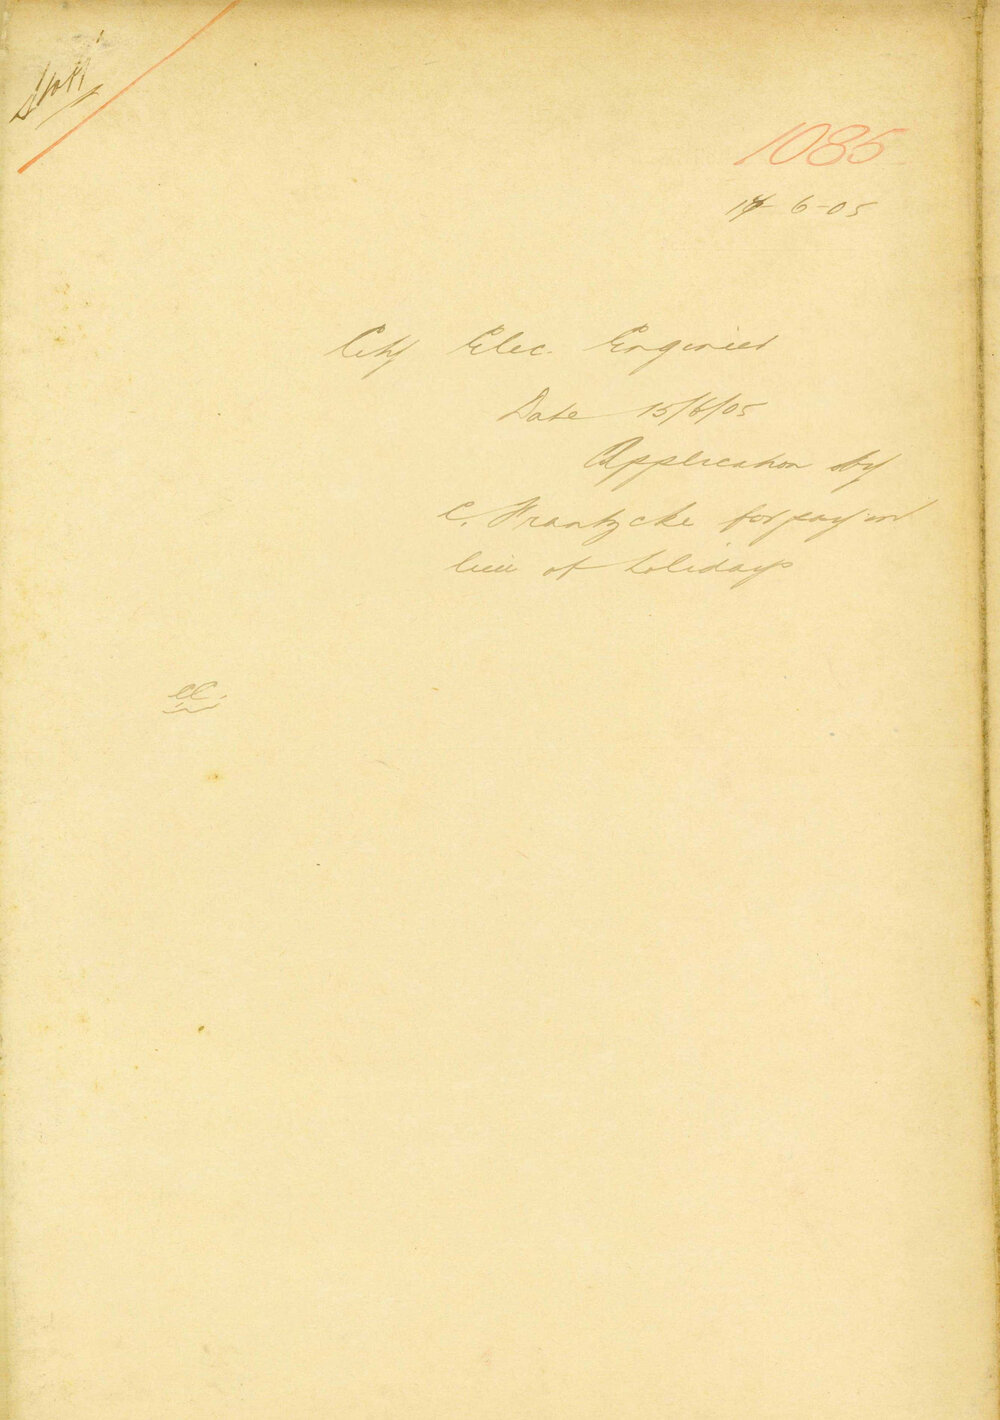 1085
6-05
City Elec. Engineer
Date 15/6/05
Application by
C. Frantzcke for pay in
lieu of holidays